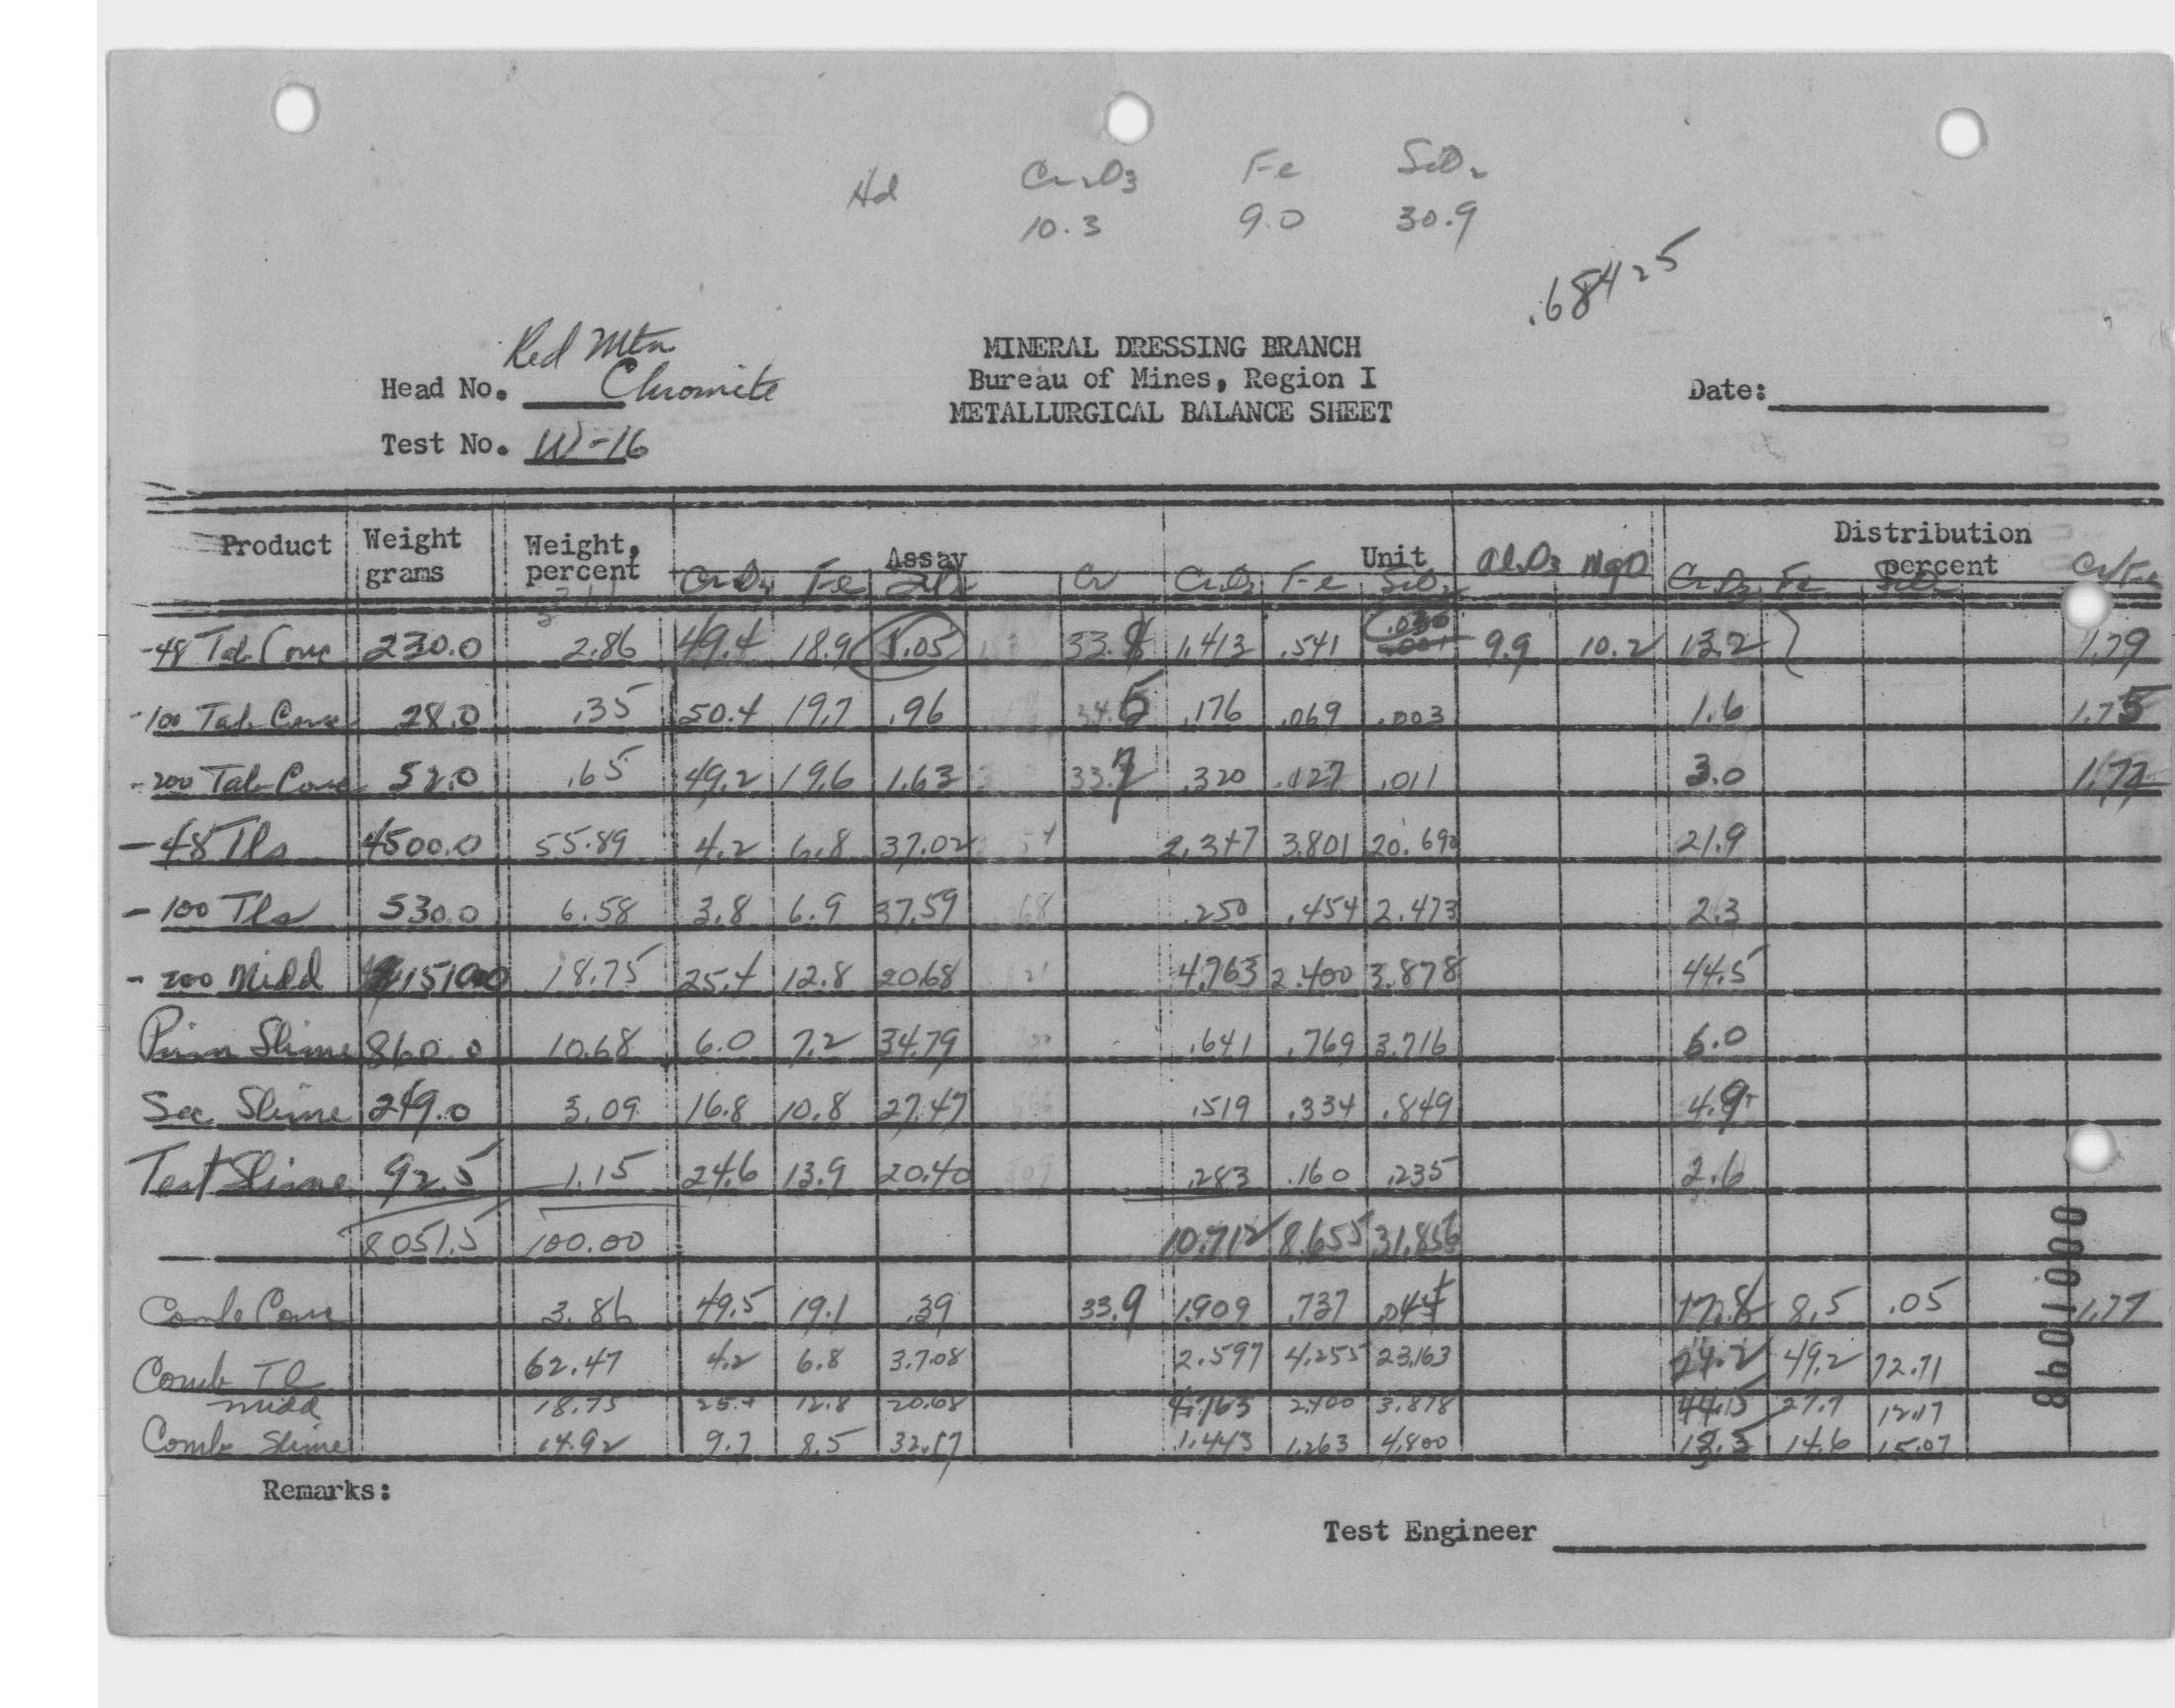 Hd Cr2O3 Fe SiO2
10.3 9.0 30.9
.68425
Red Mtn
Head No. Chromite
MINERAL DRESSING BRANCH
Bureau of Mines, Region I
METALLURGICAL BALANCE SHEET
Date:
Test No. W-16
Product Weight grams Weight, percent Assay Unit Al2O3 MgO Distribution percent Cr/Fe
Cr2O3 Fe SiO2 Cr Cr2O3 Fe SiO2 Cr2O3 Fe SiO2
-48 Tab Conc 230.0 2.86 49.4 18.9 1.05 33.8 1.413 .541 .030 9.9 10.2 13.2 1.79
-100 Tab Conc 28.0 .35 50.4 19.7 .96 34.5 .176 .069 .003 1.6 1.75
-200 Tab Conc 52.0 .65 49.2 19.6 1.63 33.7 .320 .127 .011 3.0 1.72
-48 Tls 4500.0 55.89 4.2 6.8 37.02 2.347 3.801 20.690 21.9
-100 Tls 530.0 6.58 3.8 6.9 37.59 .250 .454 2.473 2.3
-200 Midd 1510.0 18.75 25.4 12.8 20.68 4.763 2.400 3.878 44.5
Prim Slime 860.0 10.68 6.0 7.2 34.79 .641 .769 3.716 6.0
Sec Slime 249.0 3.09 16.8 10.8 27.47 .519 .334 .849 4.9
Test Slime 92.5 1.15 24.6 13.9 20.40 .283 .160 .235 2.6
8051.5 100.00 10.712 8.655 31.856
Comb Conc 3.86 49.5 19.1 .39 33.9 1.909 .737 .044 17.8 8.5 .05 1.77
Comb Tl 62.47 4.2 6.8 37.08 2.597 4.255 23.163 24.2 49.2 72.71
Midd 18.75 25.4 12.8 20.68 4.763 2.400 3.878 44.5 27.7 12.17
Comb Slime 14.92 9.7 8.5 32.17 1.443 1.263 4.800 13.5 14.6 15.07
8601000
Remarks:
Test Engineer